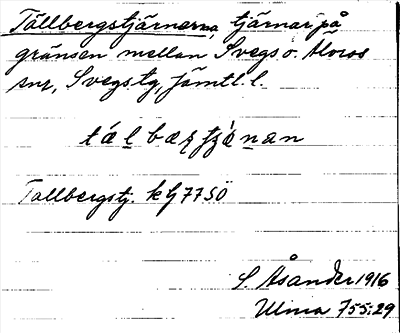 Tällbergstjärnarna, tjärnar på
gränsen mellan Svegs o. Älvros
snr, Svegs tg, Jämtl. l.
Tallbergstj. kbj 77 SÖ
S. Åsander 1916
Ulma 755:29